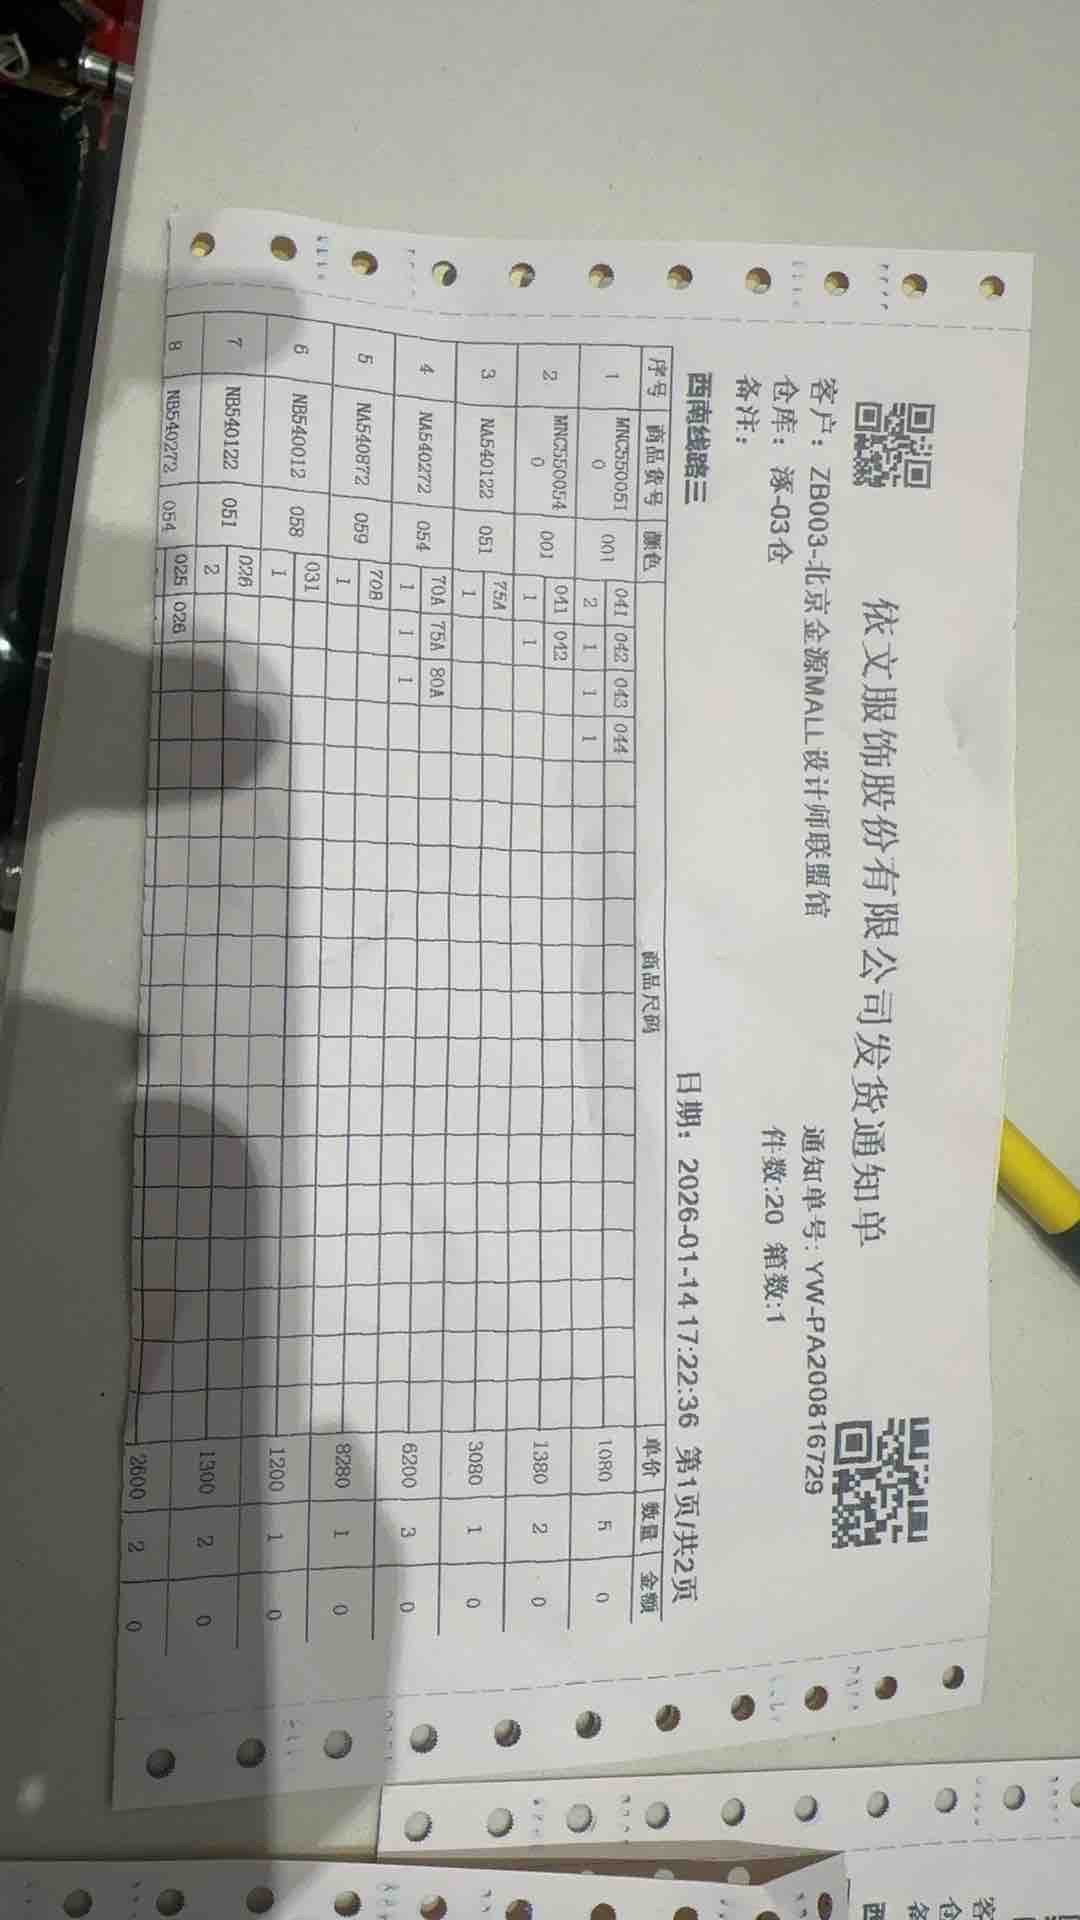 依文服饰股份有限公司发货通知单
客户：ZB003-北京金源MALL设计师联盟馆 通知单号：YW-PA200816729
仓库：涿-03仓 件数:20 箱数:1
备注：
西南线路三 日期：2026-01-14 17:22:36 第1页/共2页
序号 商品货号 颜色 商品尺码 单价 数量 金额
1 MNC550051 0 001 041 042 043 044 1080 5 0
2 1 1 1
2 MNC550054 0 001 041 042 1380 2 0
1 1
3 NA540122 051 75A 3080 1 0
1
4 NA540272 054 70A 75A 80A 6200 3 0
1 1 1
5 NA540872 059 70B 8280 1 0
1
6 NB540012 058 031 1200 1 0
1
7 NB540122 051 026 1300 2 0
2
8 NB540272 054 025 026 2600 2 0
客
仓
备
西